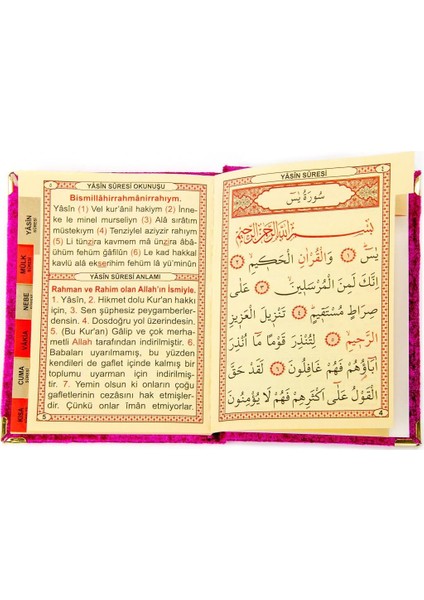 YÂSÎN SÛRESİ OKUNUŞU
Bismillâhirrahmânirrahıym.
Yâsîn (1) Vel kur'ânil hakiym (2) İnne-
ke le minel murseliyn (3) Alâ sırâtım
müstekıym (4) Tenziylel aziyzir rahıym
(5) Li tünzira kavmem mâ ünzira âbâ-
ühüm fehüm ğâfilûn (6) Le kad hakkal
kavlü alâ ekserihim fehüm lâ yü'minûn
YÂSÎN SÛRESİ ANLAMI
Rahman ve Rahim olan Allah'ın İsmiyle.
1. Yâsîn, 2. Hikmet dolu Kur'an hakkı
için, 3. Sen şüphesiz peygamberler-
densin. 4. Dosdoğru yol üzerindesin.
5. (Bu Kur'an) Gâlip ve çok merha-
metli Allah tarafından indirilmiştir. 6.
Babaları uyarılmamış, bu yüzden
kendileri de gaflet içinde kalmış bir
toplumu uyarman için indirilmiş-
tir. 7. Yemin olsun ki onların çoğu
gafletlerinin cezasını hak etmişler-
dir. Çünkü onlar îman etmiyorlar.
5
YÂSİN
SÛRESİ
MÜLK
NEBE
VÂKIA
CUMA
KISA
YÂSÎN SÛRESİ
سُورَةُ يٰسٓ
بِسْمِ اللّٰهِ الرَّحْمٰنِ الرَّحِيمِ
يٰسٓ ﴿١﴾ وَالْقُرْاٰنِ الْحَكِيمِ ﴿٢﴾
اِنَّكَ لَمِنَ الْمُرْسَلِينَ ﴿٣﴾ عَلٰى
صِرَاطٍ مُسْتَقِيمٍ ﴿٤﴾ تَنْزِيلَ الْعَزِيزِ
الرَّحِيمِ ﴿٥﴾ لِتُنْذِرَ قَوْمًا مَٓا اُنْذِرَ
اٰبَٓاؤُ۬هُمْ فَهُمْ غَافِلُونَ ﴿٦﴾ لَقَدْ حَقَّ
الْقَوْلُ عَلٰٓى اَكْثَرِهِمْ فَهُمْ لَا يُؤْمِنُونَ
4